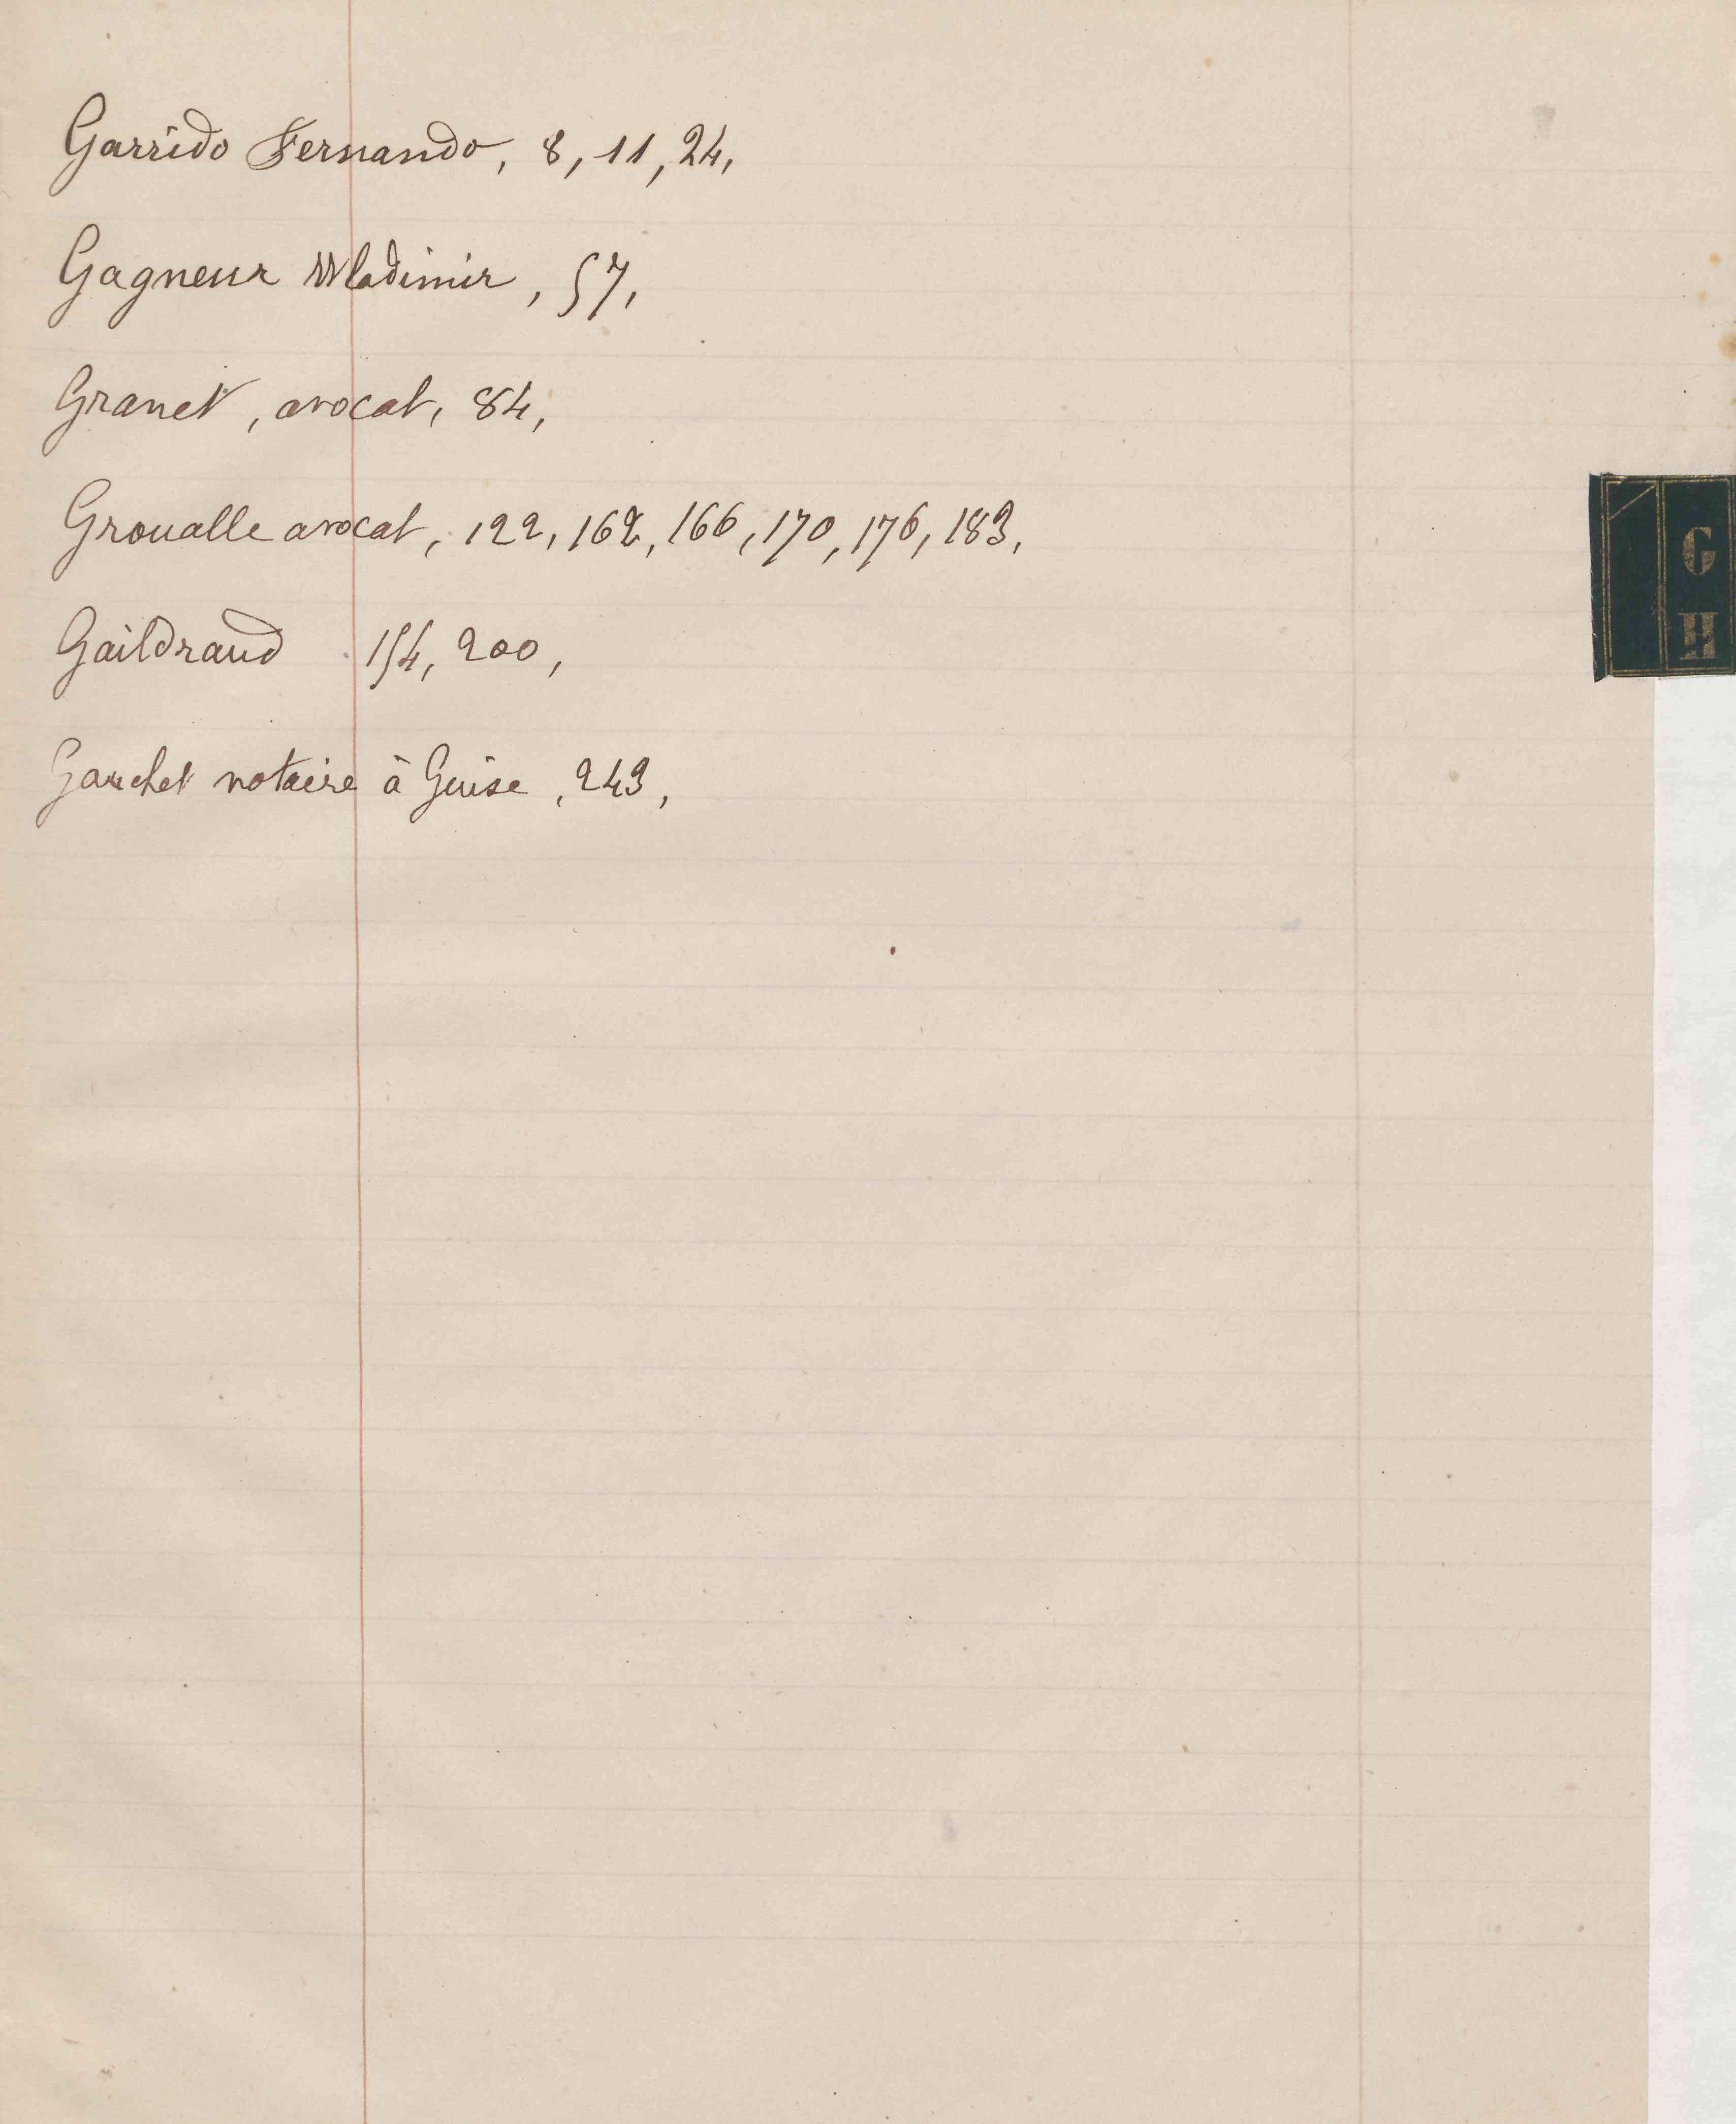 Garrido Fernando, 8, 11, 24,
Gagneur Wladimir, 57,
Granet, avocat, 84,
Groualle avocat, 122, 162, 166, 170, 176, 183,
G
Gaildraud 154, 200,
H
Gauchet notaire à Guise, 243,